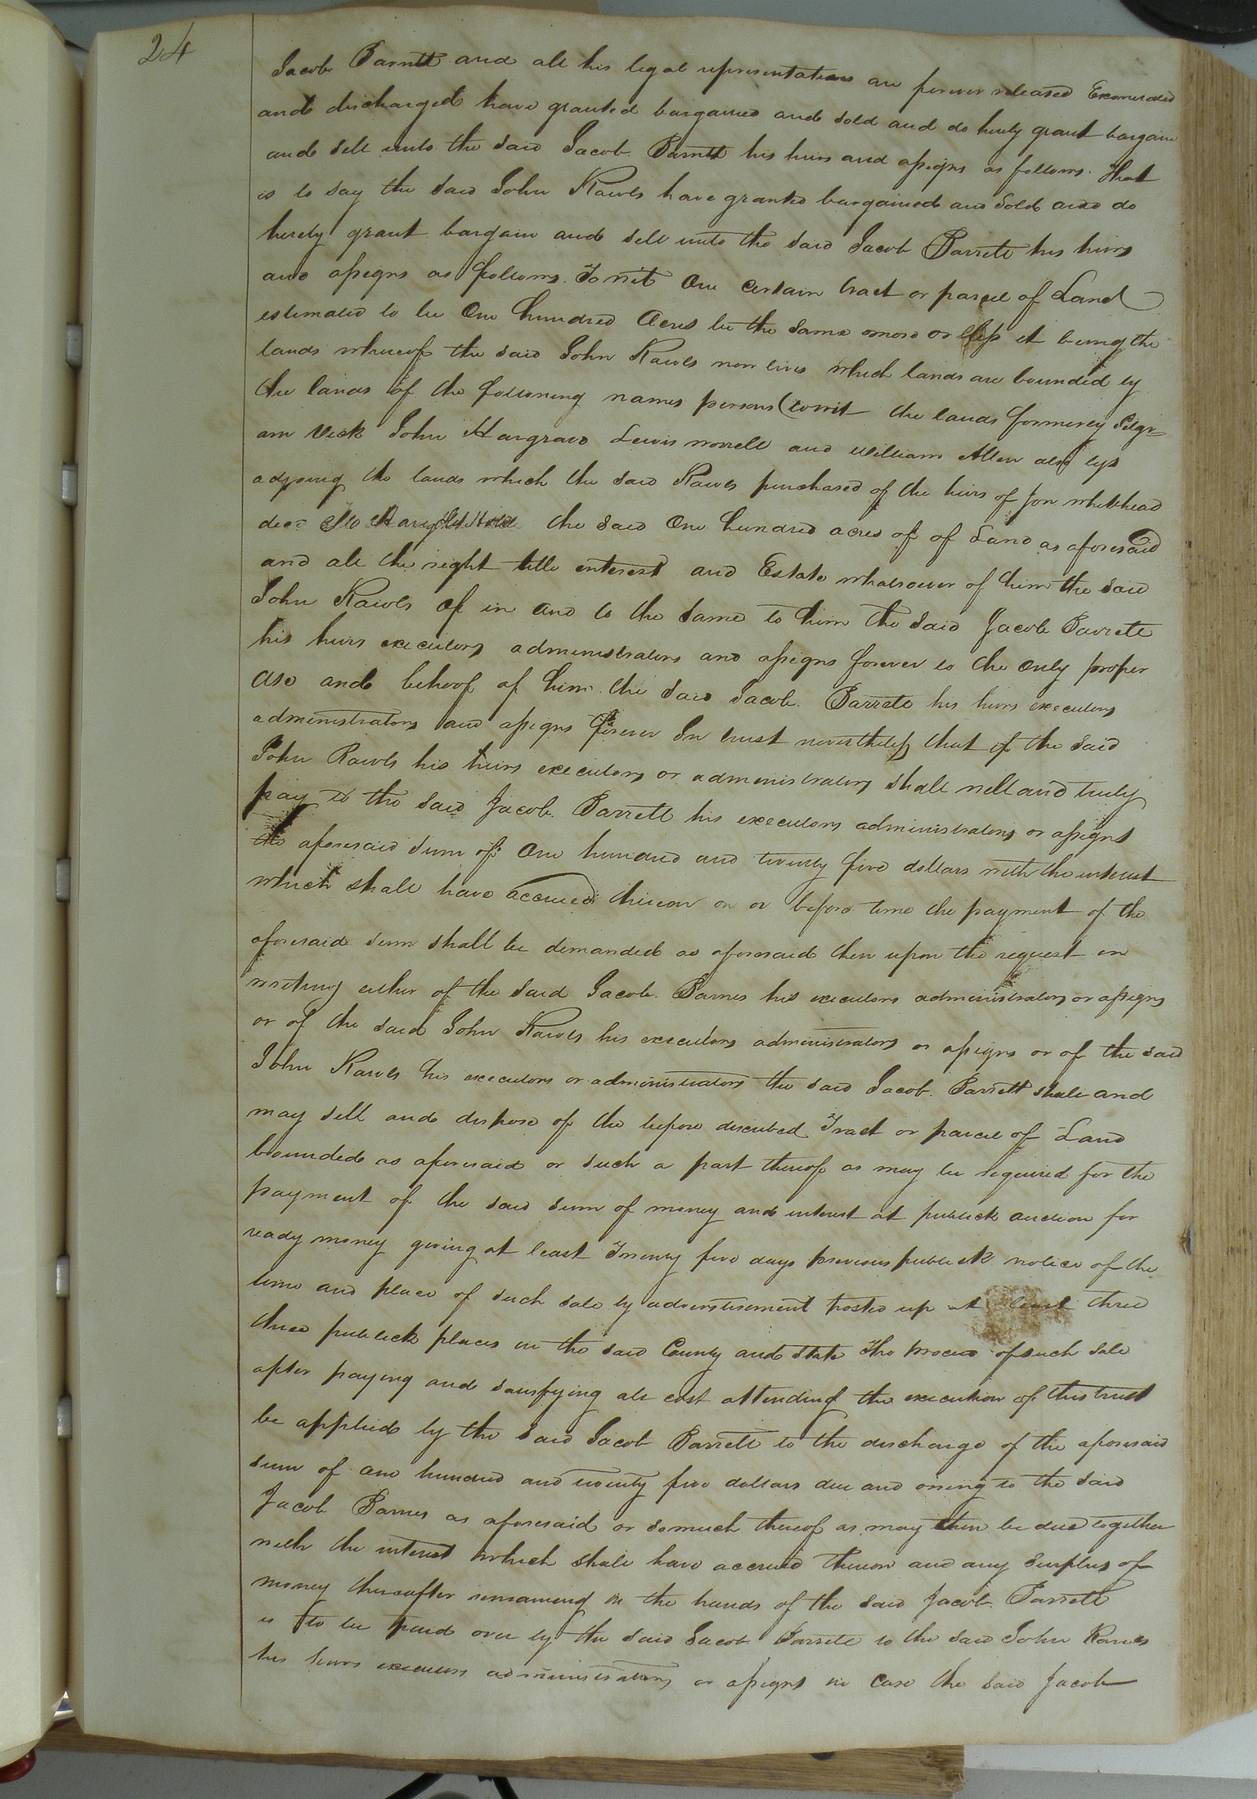 24
Jacob Barrett and all his legal representatives are forever released Exonerated
and discharged have granted bargained and sold and do hereby grant bargain
and sell unto the said Jacob Barrett his heirs and assigns as follows. That
is to say the said John Rawls have granted bargained and Sold and do
hereby grant bargain and sell unto the said Jacob Barrett his heirs
and assigns as follows. Towit One certain tract or parcel of Land
estimated to be One hundred Acres be the same more or less it being the
lands whereof the said John Rawls now lives which lands are bounded by
the lands of the following names persons (towit the lands formerly Pilgr-
am Vick John Hargrave Lewis Worrell and William Allen also
adjoing the lands which the said Rawls purchased of the heirs of Jon Whitehead
decd To Have & to Hold the said One hundred acres of of Land as aforesaid
and all the right title interest and Estate whatsoever of him the said
John Rawls of in and to the same to him the said Jacob Barrett
his heirs executors administrators and assigns forever to the only proper
use and behoof of him the said Jacob Barrett his heirs executors
administrators and assigns forever In trust nevertheless that if the said
John Rawls his heirs executors or administrators shall well and truly
pay to the said Jacob Barrett his executors administrators or assigns
the aforesaid sum of One hundred and twenty five dollars with the interest
which shall have accrued thereon on or before time the payment of the
aforesaid sum shall be demanded as aforesaid then upon the request in
writing either of the said Jacob Barnes his executors administrators or assigns
or of the said John Rawls his executors administrators or assigns or of the said
John Rawls his executors or administrators the said Jacob Barrett shall and
may sell and dispose of the before described Tract or parcel of Land
bounded as aforesaid or such a part thereof as may be required for the
payment of the said sum of money and interest at publick auction for
ready money giving at least Twenty five days previous publick notice of the
time and place of such sale by adverstisement posted up at least three
three publick places in the said County and State The proceed of such sale
after paying and satisfying all cost attending the execution of this trust
be applied by the said Jacob Barrett to the discharge of the aforesaid
sum of one hundred and twenty five dollars due and owing to the said
Jacob Barnes as aforesaid or so much thereof as may then be due together
with the interest which shall have accrued thereon and any Surplus of
money thereafter remaining in the hands of the said Jacob Barrett
is to be paid over by the said Jacob Barrett to the said John Rawls
his heirs executors administrators or assigns in case the said Jacob